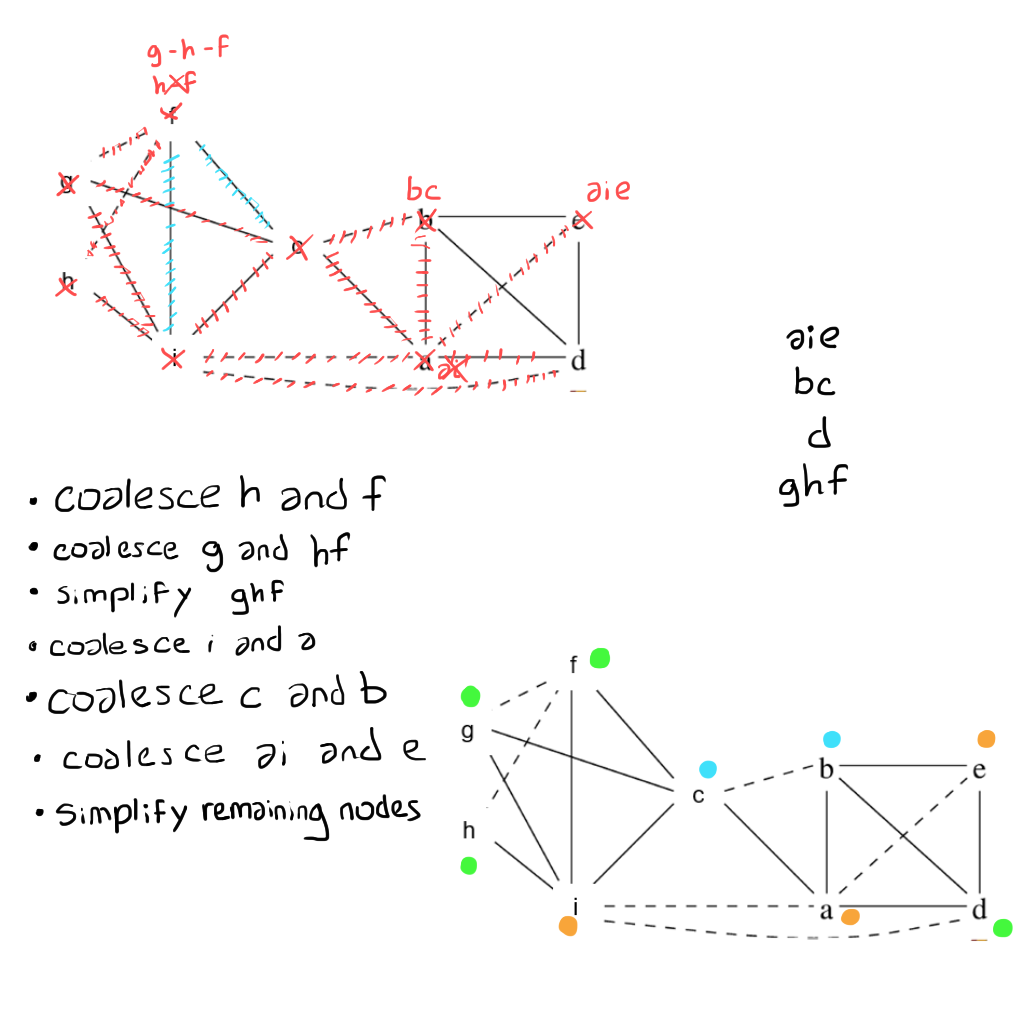 g-h-f
hf
f
g
bc
aie
b
e
c
h
i
a
ai
d
aie
bc
d
ghf
• coalesce h and f
• coalesce g and hf
• simplify ghf
• coalesce i and a
• coalesce c and b
• coalesce ai and e
• simplify remaining nodes
f
g
b
e
c
h
i
a
d